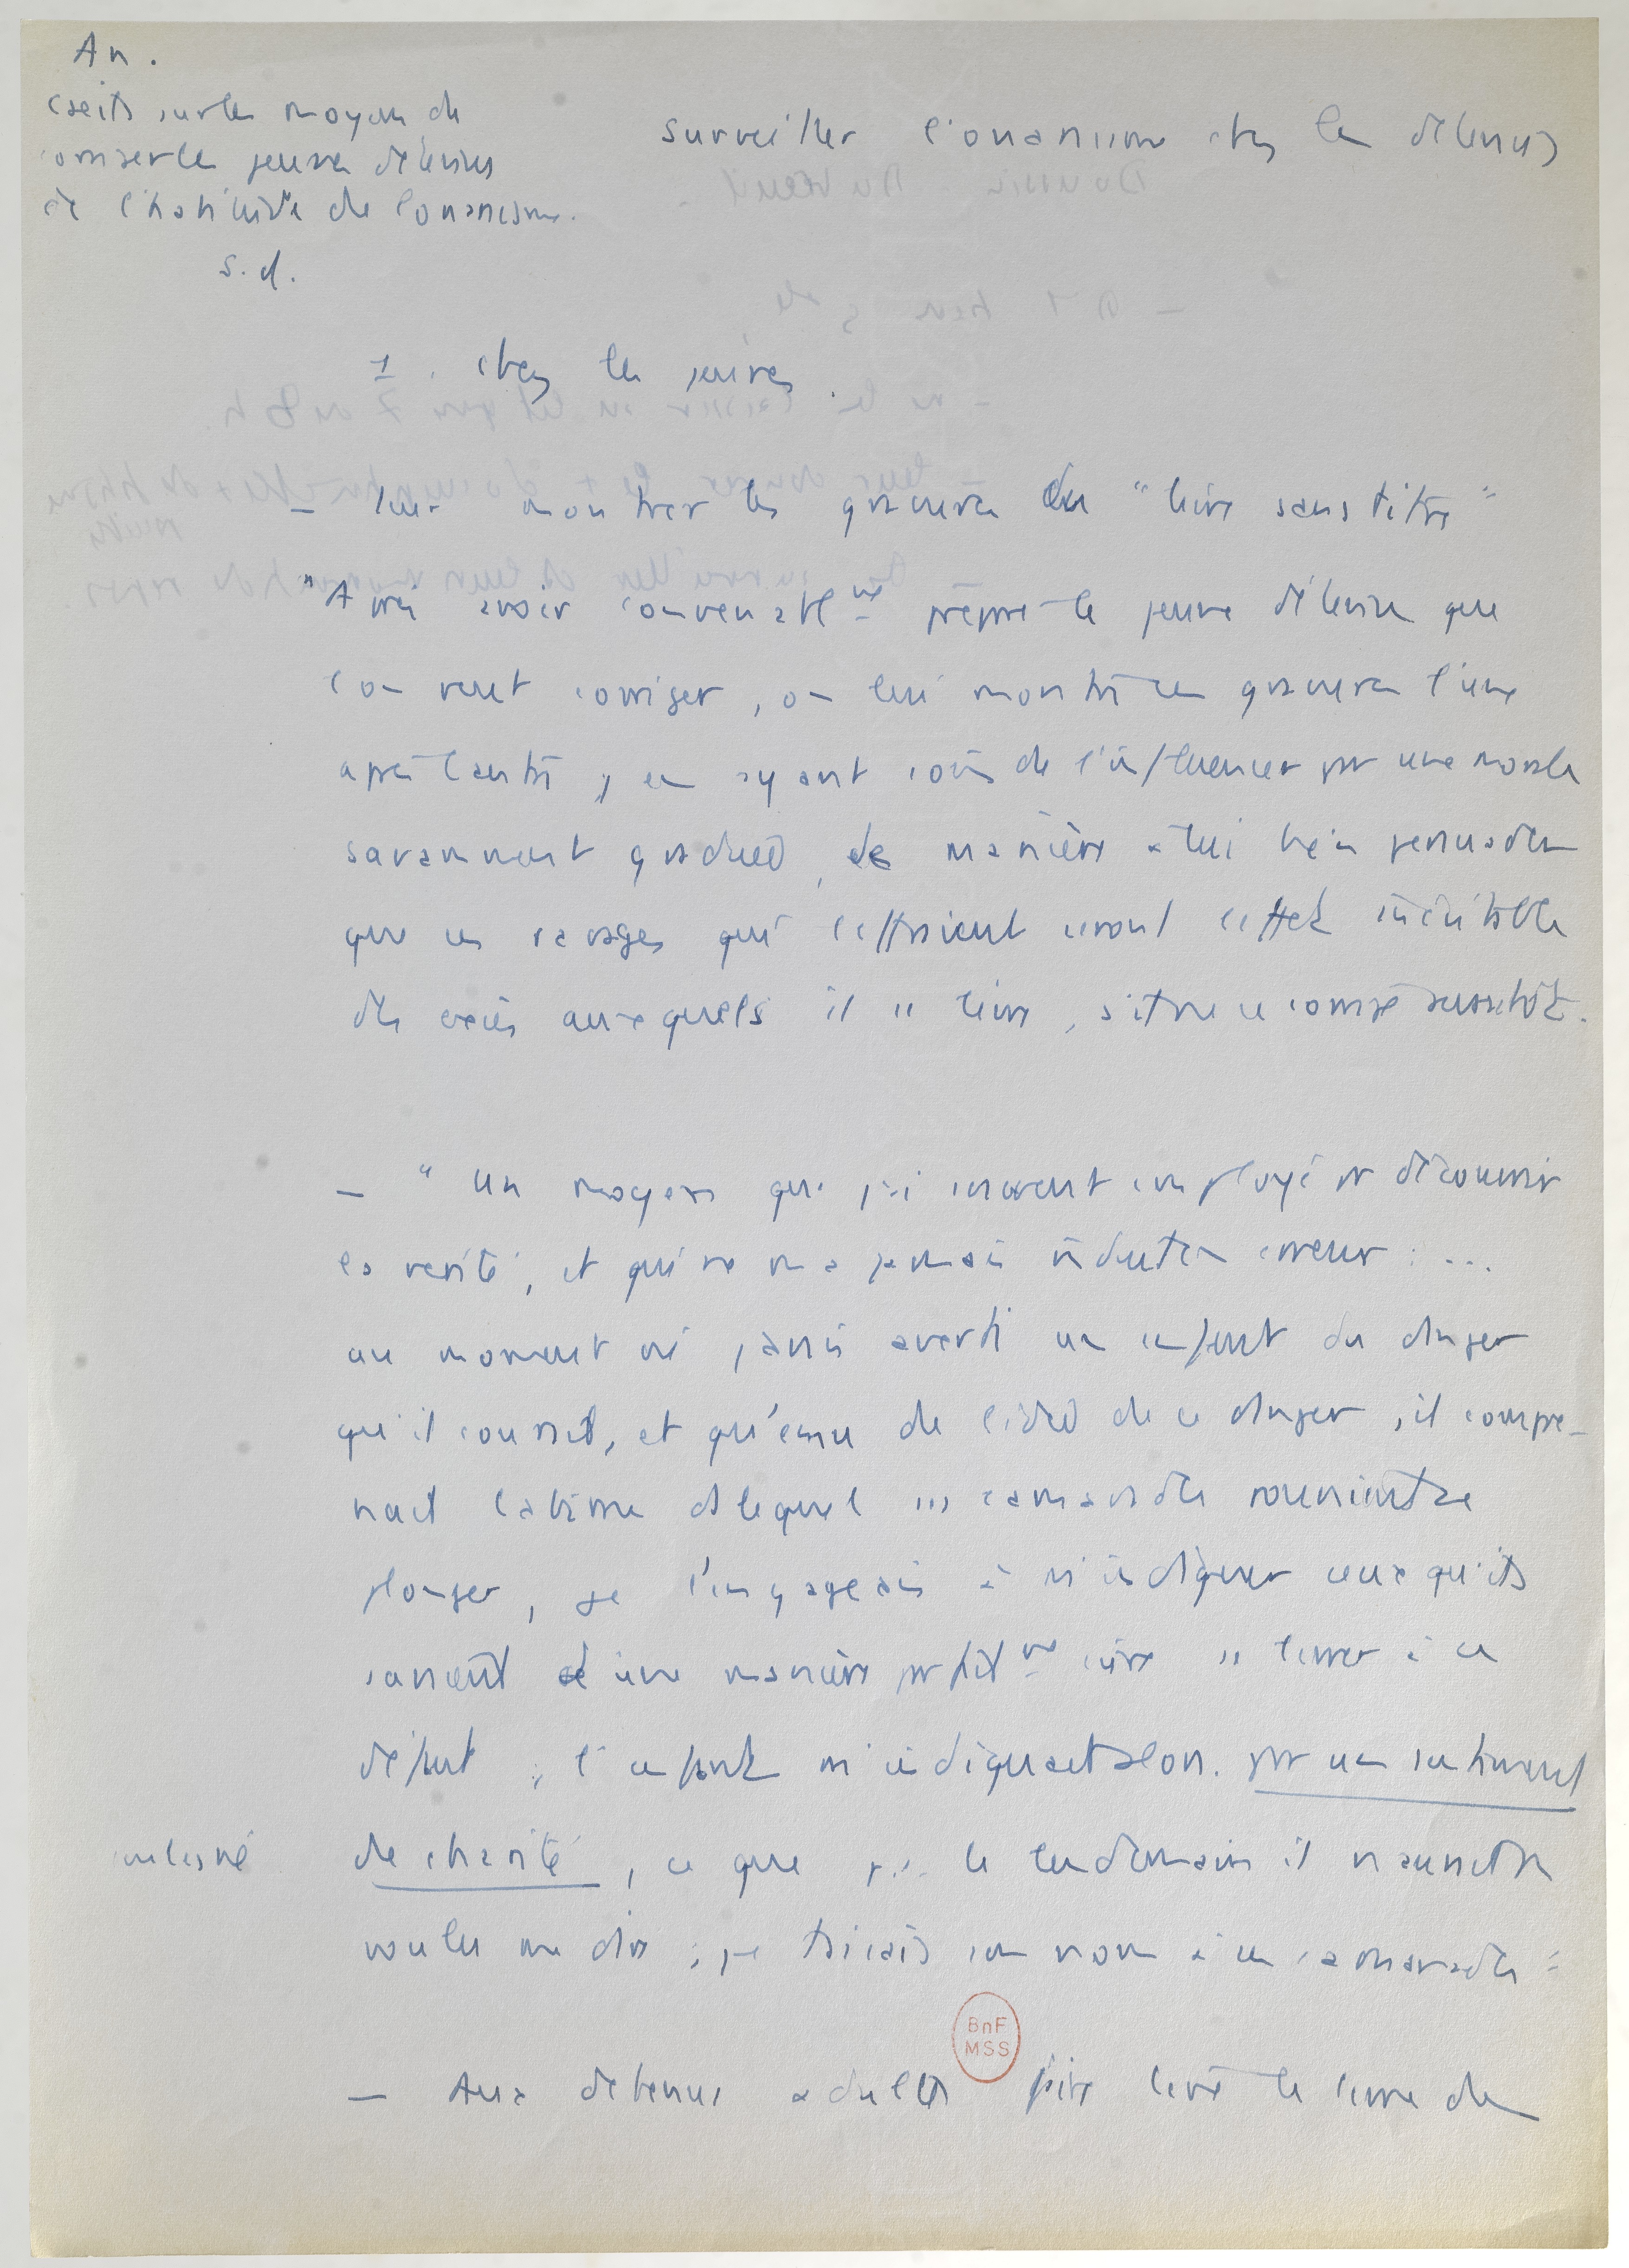 An.
écrits sur les moyens de
corriger les jeunes détenus
de l'habitude de l'onanisme.
s.d.
Surveiller l'onanisme chez les détenus
1. chez les jeunes.
– leur montrer les gravures du "livre sans titre"
"Après avoir convenabl^mt préparé le jeune détenu que
l'on veut corriger, on lui montre ces gravures l'une
après l'autre, en ayant soin de l'influencer par une morale
savamment graduée, de manière à lui bien persuader
que ces ravages qui l'effraient seront l'effet inévitable
des excès auxquels il se livre, s'il ne se corrige aussitôt.
– "Un moyen que j'ai souvent employé pr découvrir
la vérité, et qui ne m'a jamais induit en erreur : ...
au moment où j'avais averti un enfant du danger
qu'il courait, et qu'ému de l'idée de ce danger, il compre-
nait l'abîme ds lequel ses camarades pouvaient se
plonger, je l'engageais à m'indiquer ceux qu'ils
savaient d'une manière parfait^mt sûre se livrer à ce
défaut ; l'enfant m'indiquait alors. par un sentiment
souligné de charité, ce que le lendemain il n'aurait
voulu me dire ; je taisais son nom à ses camarades :
BnF
MSS
– Aux détenus adultes faire lire le livre de